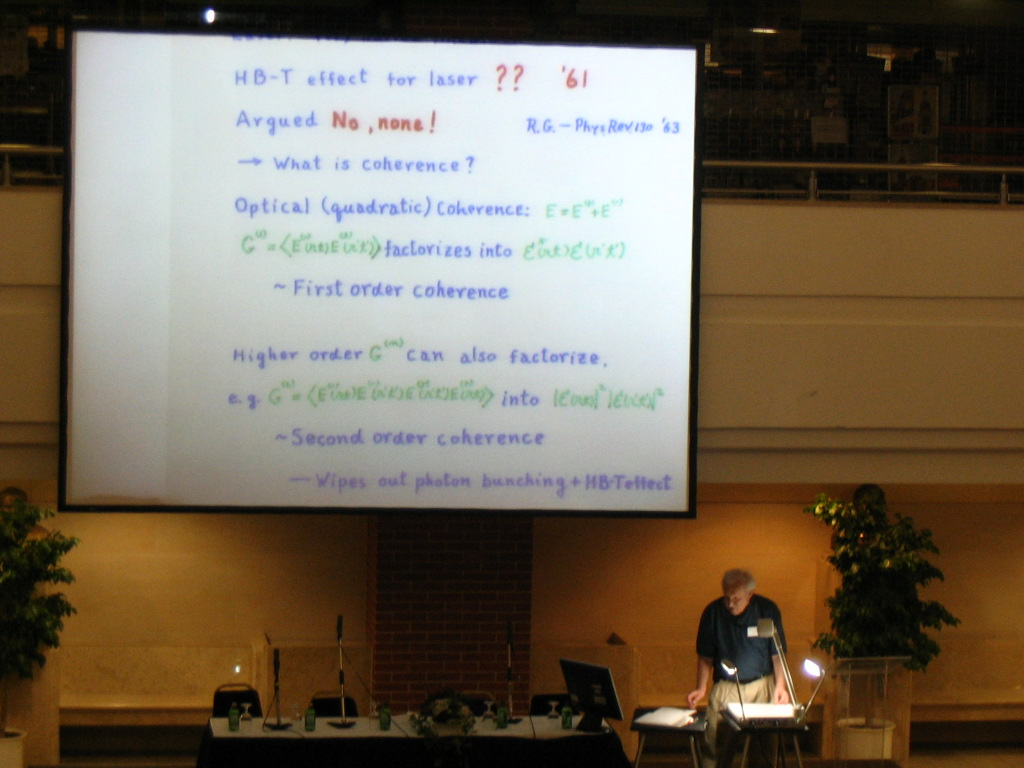 HB-T effect for laser ?? '61
Argued No, none! R.G. — Phys Rev 130 '63
→ What is coherence?
Optical (quadratic) Coherence: E = E⁽⁺⁾ + E⁽⁻⁾
G⁽¹⁾ = ⟨E⁽⁻⁾(rt) E⁽⁺⁾(r't')⟩ factorizes into ℰ*(rt) ℰ(r't')
~ First order coherence
Higher order G⁽ⁿ⁾ can also factorize.
e.g. G⁽²⁾ = ⟨E⁽⁻⁾(rt) E⁽⁻⁾(r't') E⁽⁺⁾(r't') E⁽⁺⁾(rt)⟩ into |ℰ(rt)|² |ℰ(r't')|²
~ Second order coherence
— Wipes out photon bunching + HB-T effect